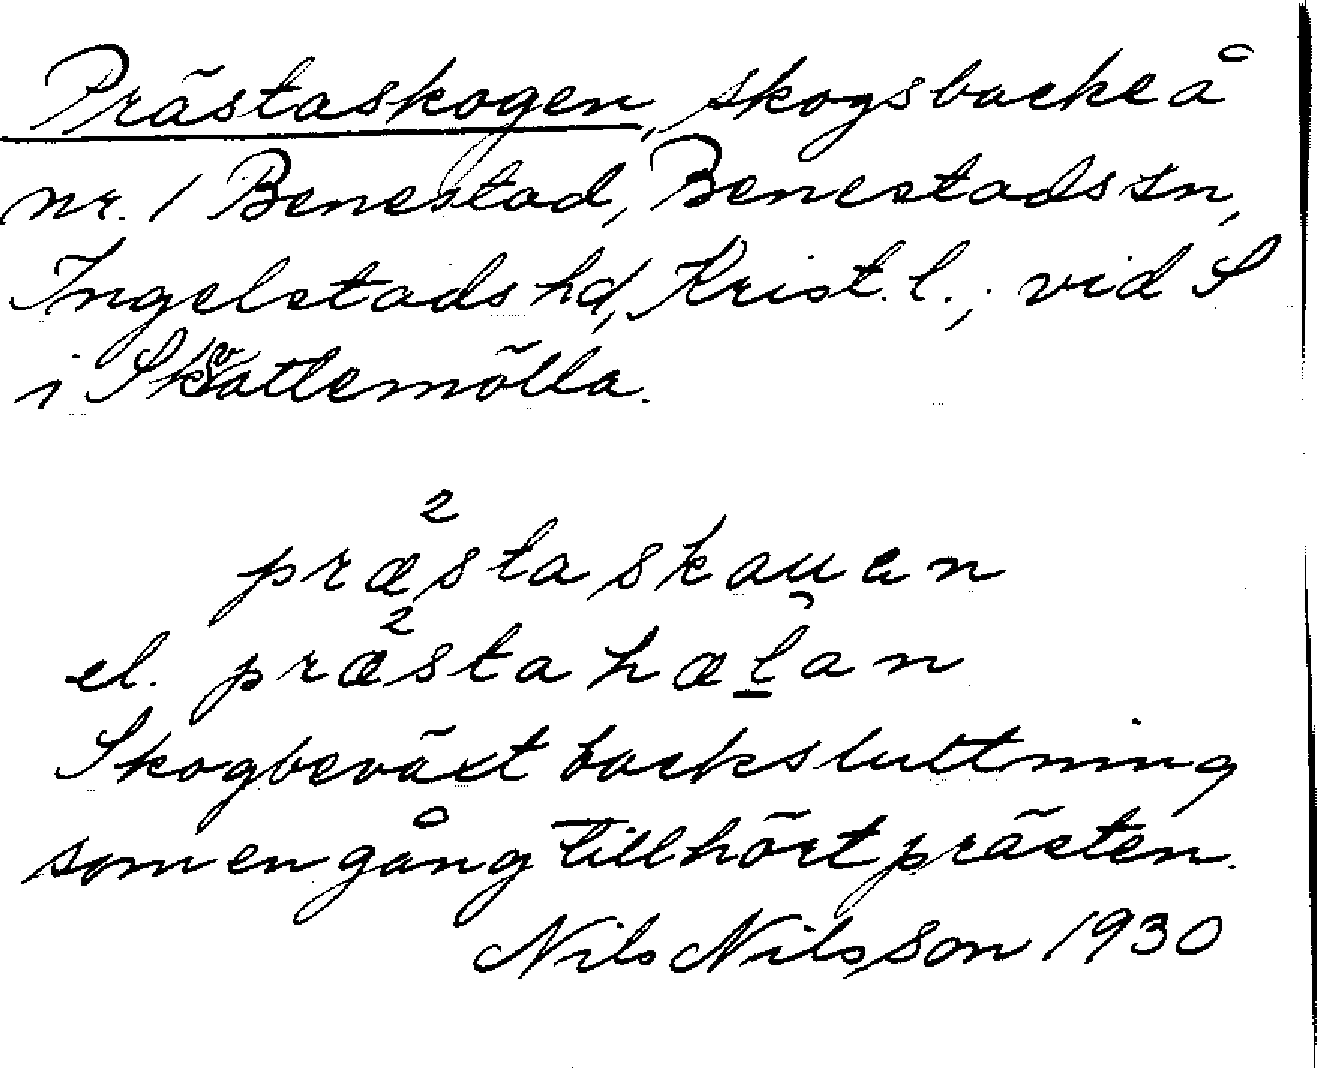 Prästaskogen, skogsbacke å
nr. 1 Benestad, Benestads sn,
Ingelstads hd, Krist. l.; vid S
i
2
præstaskauen
2
el. præstahælan
Skogbeväxt backsluttning
som en gång tillhört prästen.
Nils Nilsson 1930